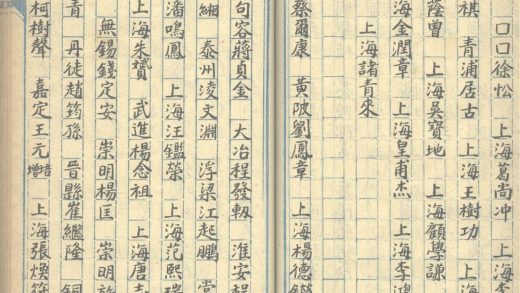 囗囗徐松 上海葛尚冲 上海李
祺 青浦居古 上海王樹功 上海
蔭曾 上海吳寶地 上海顧學謙
上海金潤章 上海皇甫杰 上海李鴻
上海諸青來
蔡爾康 黃陂劉鳳章 上海楊德鑅
句容蔣貞金 大冶程發軔 淮安程
緗 泰州淩文淵 浮梁江起鵬 常
潘鳴鳳 上海汪鑑榮 上海范熙瑞
上海朱贇 武進楊念祖 上海唐志
無錫錢定安 崇明楊匡 崇明施
青 丹徒趙筠孫 晉縣崔繼隆 銅
柯樹聲 嘉定王元增 上海張煥符